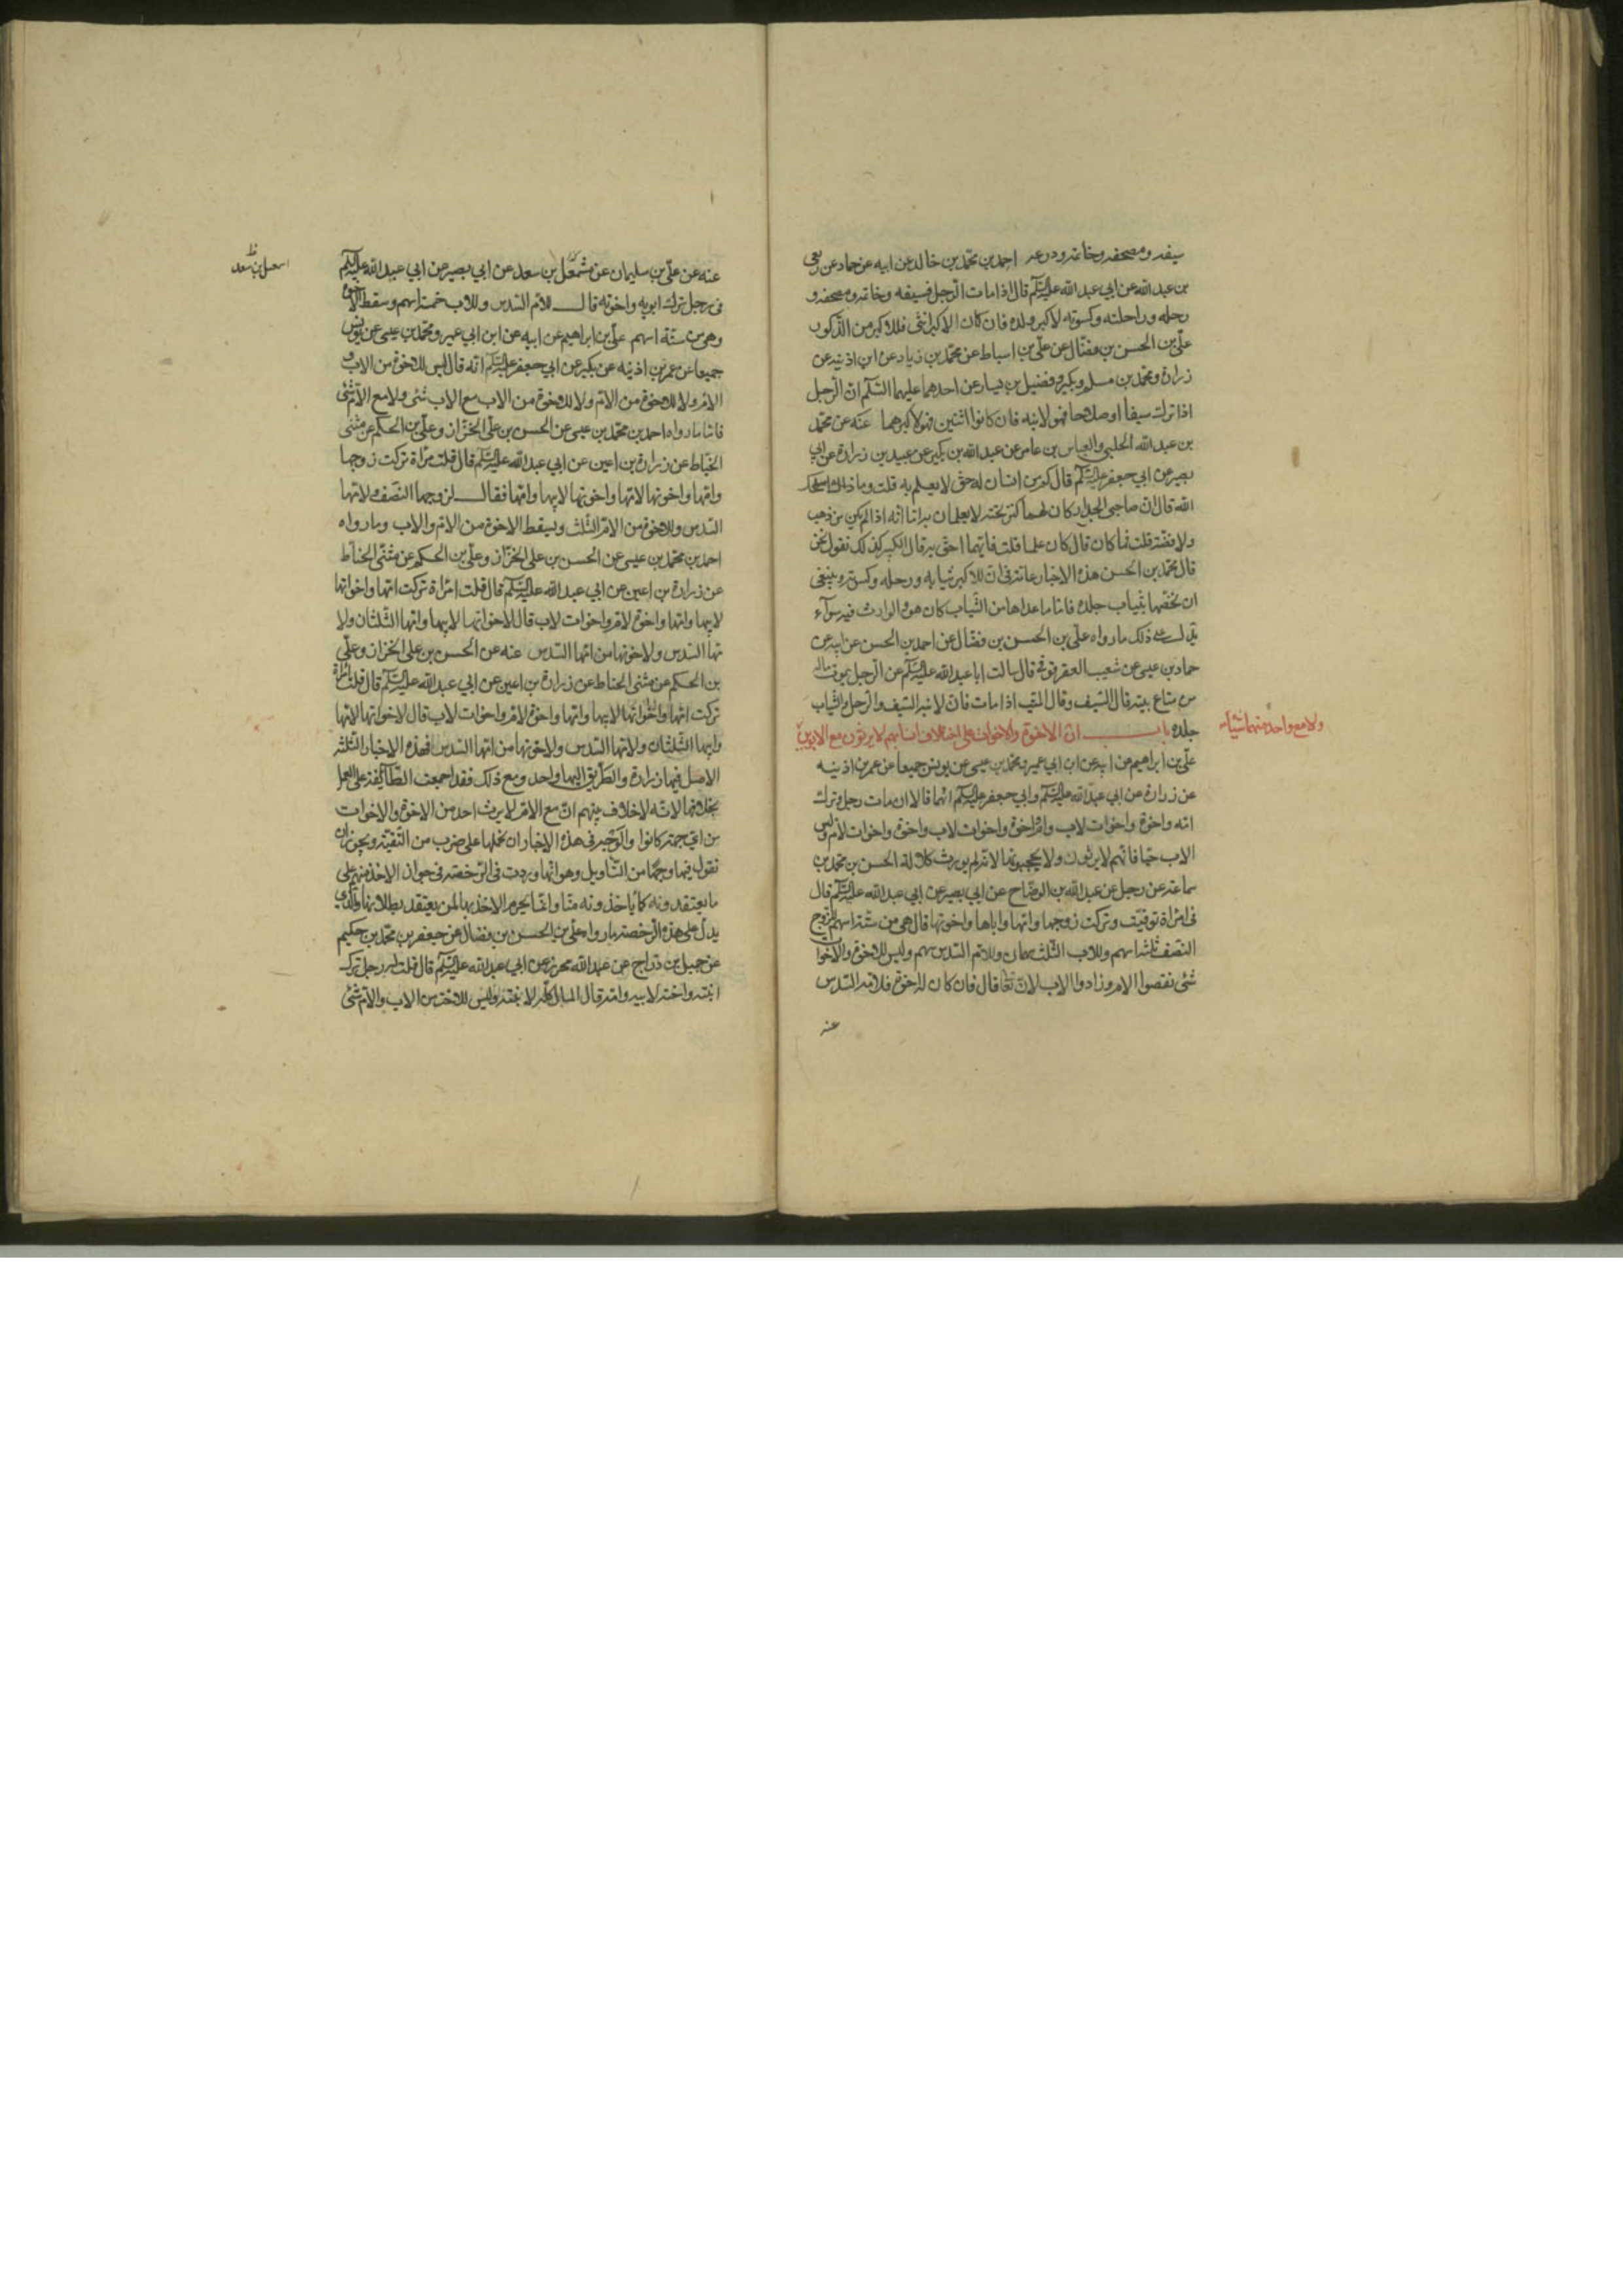 سيفه ومصحفه وخاتمه ودرعه احمد بن محمد بن خالد عن ابيه عن حماد عن ربعي
بن عبد الله عن ابي عبد الله عليه السلام قال اذا مات الرجل فسيفه وخاتمه ومصحفه و
رحله وراحلته وكسوته لاكبر ولده فان كان الاكبر انثى فللاكبر من الذكور
علي بن الحسن بن فضال عن علي بن اسباط عن محمد بن زياد عن ابن اذينه عن
زرارة ومحمد بن مسلم وبكير وفضيل بن يسار عن احدهما عليهما السلم ان الرجل
اذا ترك سيفا او سلاحا فهو لابنه فان كانوا اثنين فهو لاكبرهما عنه عن محمد
بن عبد الله الحلبي والعباس بن عامر عن عبد الله بن بكير عن عبيد بن زرارة عن ابي
بصير عن ابي جعفر عليه السلام قال كم من انسان له حق لا يعلم به قلت وما ذاك اصلحك
الله قال ان صاحبي الجدار كان لهما كنز تحته لا يعلمان به اما انه اذا لم يكن من ذهب
ولا فضة قلت فما كان قال كان علما قلت فايهما احق به قال الكبير كذلك نقول نحن
قال محمد بن الحسن هذه الاخبار عامة في ان للاكبر ثيابه ورحله وكسوته وينبغي
ان نخصها بثياب جلده فاما ما عداها من الثياب كان هو والوارث فيه سواء
يدل على ذلك ما رواه علي بن الحسن بن فضال عن احمد بن الحسن عن ابيه عن
حماد بن عيسى عن شعيب العقرقوفي قال سالت ابا عبد الله عليه السلام عن الرجل يموت ماله
من متاع بيته قال السيف وقال الميت اذا مات فان لابنه السيف والرحل والثياب
جلده باب ان الاخوة والاخوات على اختلاف انسابهم لا يرثون مع الابوين
ولا مع واحد منهما شيئا
علي بن ابراهيم عن ابيه عن ابن ابي عمير ومحمد بن عيسى عن يونس جميعا عن عمر بن اذينه
عن زرارة عن ابي عبد الله عليه السلام وابي جعفر عليه السلام انهما قالا ان مات رجل وترك
امه واخوة واخوات لاب وام واخوة واخوات لاب واخوة واخوات لام وليس
الاب حيا فانهم لا يرثون ولا يحجبونها لانه لم يورث كلالة الحسن بن محمد بن
سماعة عن رجل عن عبد الله بن الوضاح عن ابي بصير عن ابي عبد الله عليه السلام قال
في امراة توفيت وتركت زوجها وامها واباها واخوتها قال هي من ستة اسهم للزوج
النصف ثلثة اسهم وللاب الثلث سهمان وللام السدس سهم وليس للاخوة والاخوات
شئ نقصوا الام وزادوا الاب لان الله تعالى قال فان كان له اخوة فلامه السدس
عنه
عنه عن علي بن سليمان عن مشمعل بن سعد عن ابي بصير عن ابي عبد الله عليه السلام
اسمعيل بن سعد
في رجل ترك ابويه واخوته قال للام السدس وللاب خمسة اسهم وسقط الاخوة
وهي من ستة اسهم علي بن ابراهيم عن ابيه عن ابن ابي عمير ومحمد بن عيسى عن يونس
جميعا عن عمر بن اذينه عن بكير عن ابي جعفر عليه السلام انه قال ليس للاخوة من الاب
الام ولا للاخوة من الام ولا للاخوة من الاب مع الاب شئ ولا مع الام شئ
فاما ما رواه احمد بن محمد بن عيسى عن الحسن بن علي الخزاز وعلي بن الحكم عن مثنى
الحناط عن زرارة بن اعين عن ابي عبد الله عليه السلام قال قلت امراة تركت زوجها
وامها واخوتها لامها واخوتها لابيها وامها فقال لزوجها النصف ولامها
السدس وللاخوة من الام الثلث ويسقط الاخوة من الام والاب وما رواه
احمد بن محمد بن عيسى عن الحسن بن علي الخزاز وعلي بن الحكم عن مثنى الحناط
عن زرارة بن اعين عن ابي عبد الله عليه السلام قال قلت امراة تركت امها واخواتها
لابيها وامها واخوة لام واخوات لاب قال لاخواتها لابيها وامها الثلثان ولا
مها السدس ولاخوتها من امها السدس عنه عن الحسن بن علي الخزاز وعلي
بن الحكم عن مثنى الحناط عن زرارة بن اعين عن ابي عبد الله عليه السلام قال قلت امراة
تركت امها واخواتها لابيها وامها واخوة لام واخوات لاب قال لاخواتها لامها
وابيها الثلثان ولامها السدس ولاخوتها من امها السدس فهذه الاخبار الثلثة
الاصل فيها زرارة والطريق اليها واحد ومع ذلك فقد اجمعت الطائفة على العمل
بخلافها لانه لا خلاف بينهم ان مع الام لا يرث احد من الاخوة والاخوات
من اي جهة كانوا والوجه في هذه الاخبار ان نحملها على ضرب من التقية ويجوز ان
نقول فيها وجها من التاويل وهو انها وردت في الرخصة في جواز الاخذ منهم على
ما يعتقدونه كما ياخذونه منا وانما يحرم الاخذ بها لمن يعتقد بطلانها والذي
يدل على هذه الرخصة ما رواه علي بن الحسن بن فضال عن جعفر بن محمد بن حكيم
عن جميل بن دراج عن عبد الله محرز عن ابي عبد الله عليه السلام قال قلت له رجل ترك
ابنته واخته لابيه وامه قال المال كله لابنته وليس للاخت من الاب والام شئ